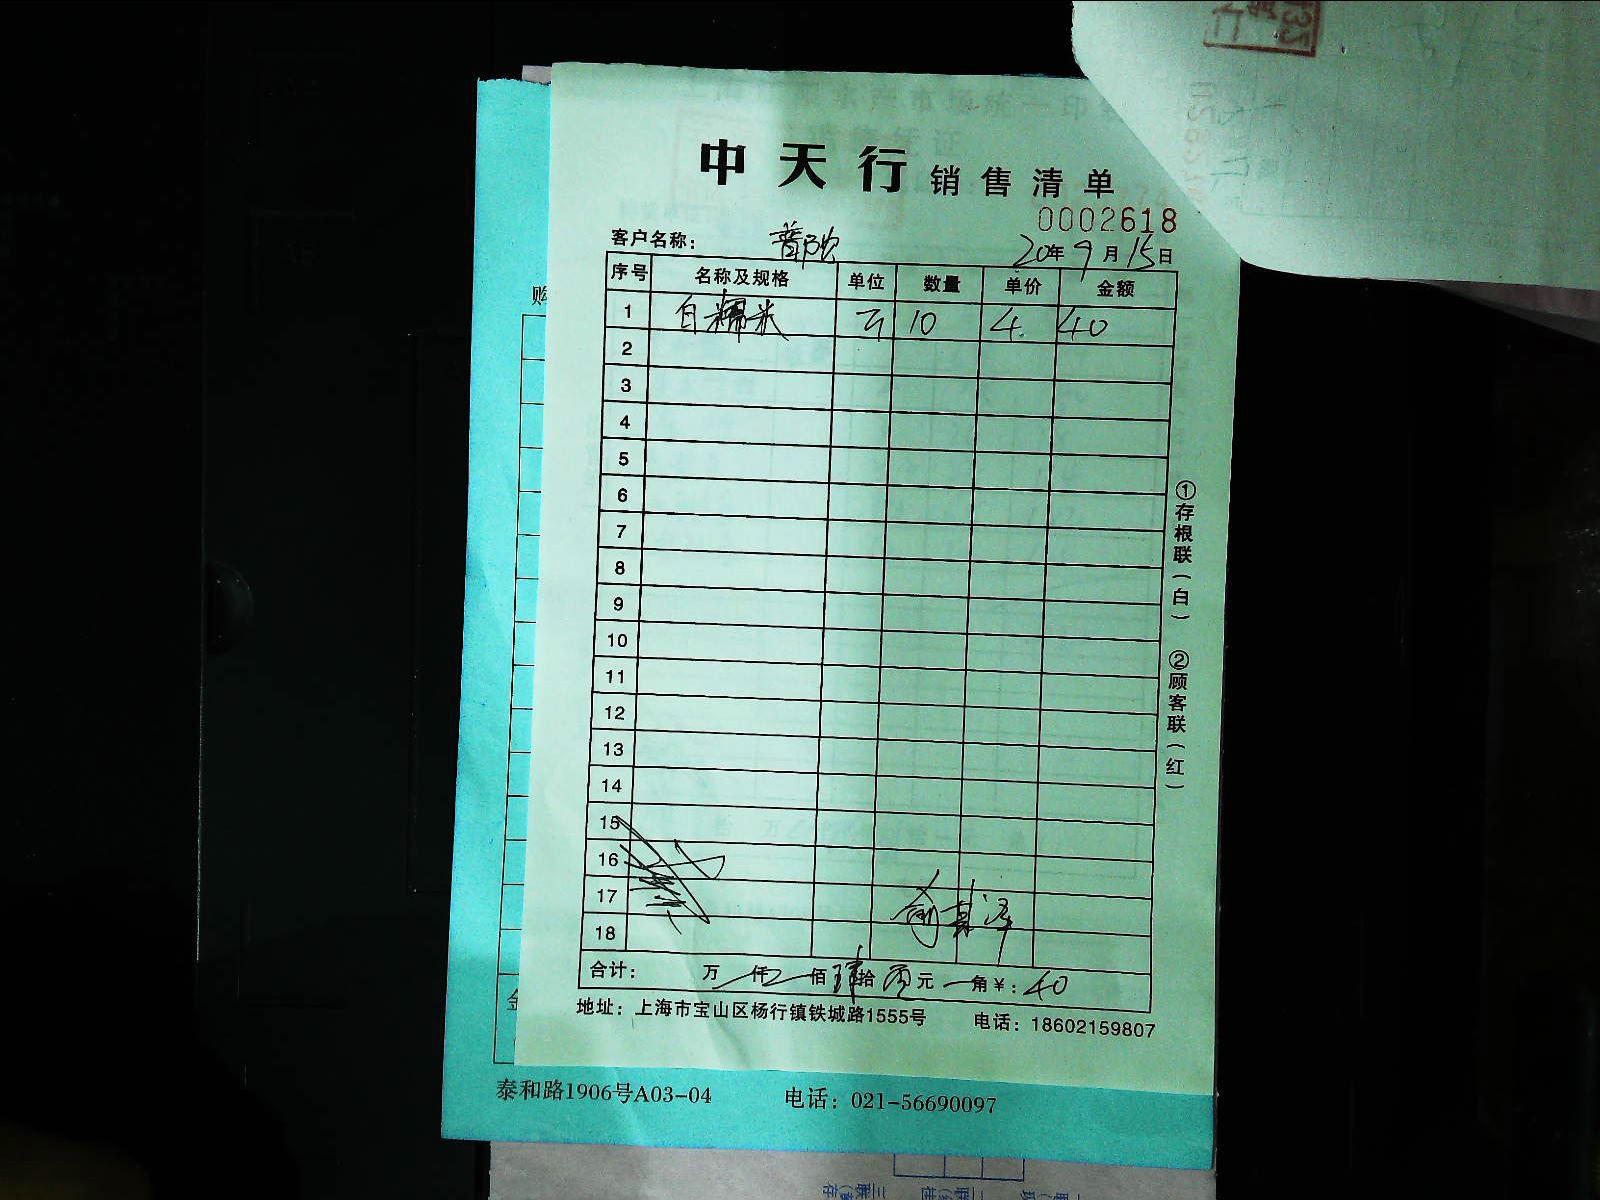 中天行 销售清单
0002618
客户名称: 普欣 20年9月15日
序号 名称及规格 单位 数量 单价 金额
1 白糯米 斤 10 4. 40
2
3
4
5
6
7
8
9
10
11
12
13
14
15
16
17
18
合计: 万 仟 佰 肆拾 元 角 ¥: 40
地址: 上海市宝山区杨行镇铁城路1555号 电话: 18602159807
①存根联(白) ②顾客联(红)
购
金
泰和路1906号A03-04 电话: 021-56690097